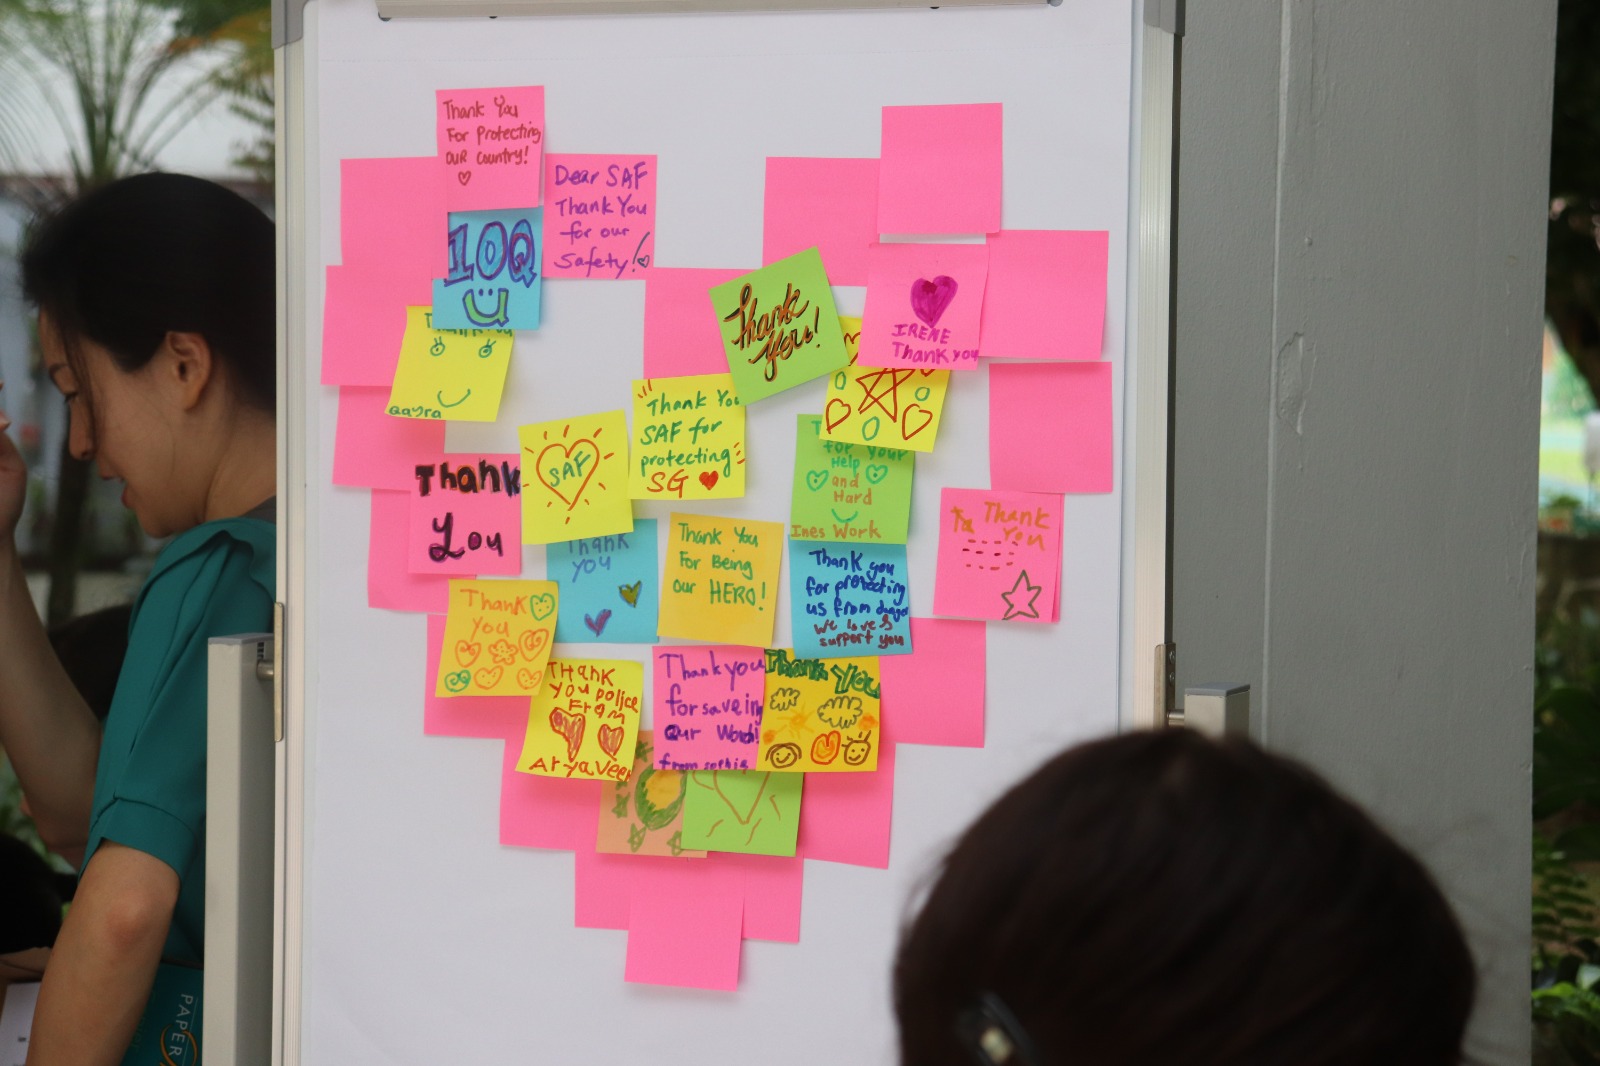 Thank You
For Protecting
OUR Country!
Dear SAF
Thank You
for our
Safety!
10Q
Thank You!
IRENE
Thank you
Qayra
Thank You
SAF for
protecting
SG
SAF
for your
Help
and
Hard
Ines Work
Thank
You
Thank
You
Thank
you
Thank You
For Being
our HERO!
Thank you
for protecting
us from danger
We love &
support you
Thank
You
THank
You police
From
Aryaveer
Thank you
for saveing
our World!
from sophia
Thank You
PAPER